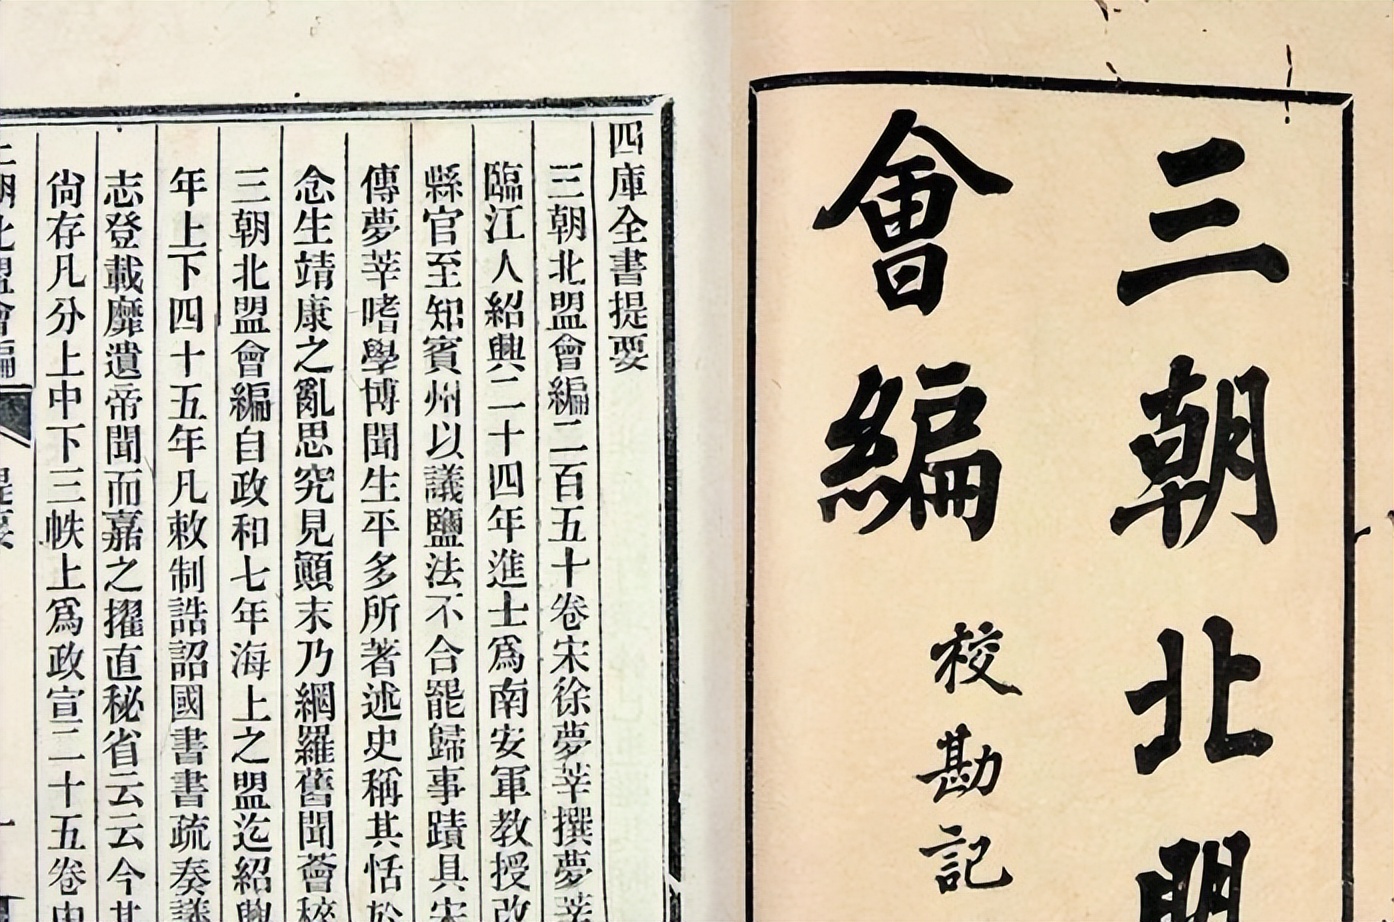 三朝北盟
會編
校勘記
四庫全書提要
三朝北盟會編二百五十卷宋徐夢莘撰夢莘
臨江人紹興二十四年進士爲南安軍教授改
縣官至知賓州以議鹽法不合罷歸事蹟具宋
傳夢莘嗜學博聞生平多所著述史稱其恬於
念生靖康之亂思究見顚末乃網羅舊聞薈稡
三朝北盟會編自政和七年海上之盟迄紹興
年上下四十五年凡敕制誥詔國書書疏奏議
志登載靡遺帝聞而嘉之擢直秘省云云今其
尙存凡分上中下三帙上爲政宣二十五卷中
三朝北盟會編
提要
一